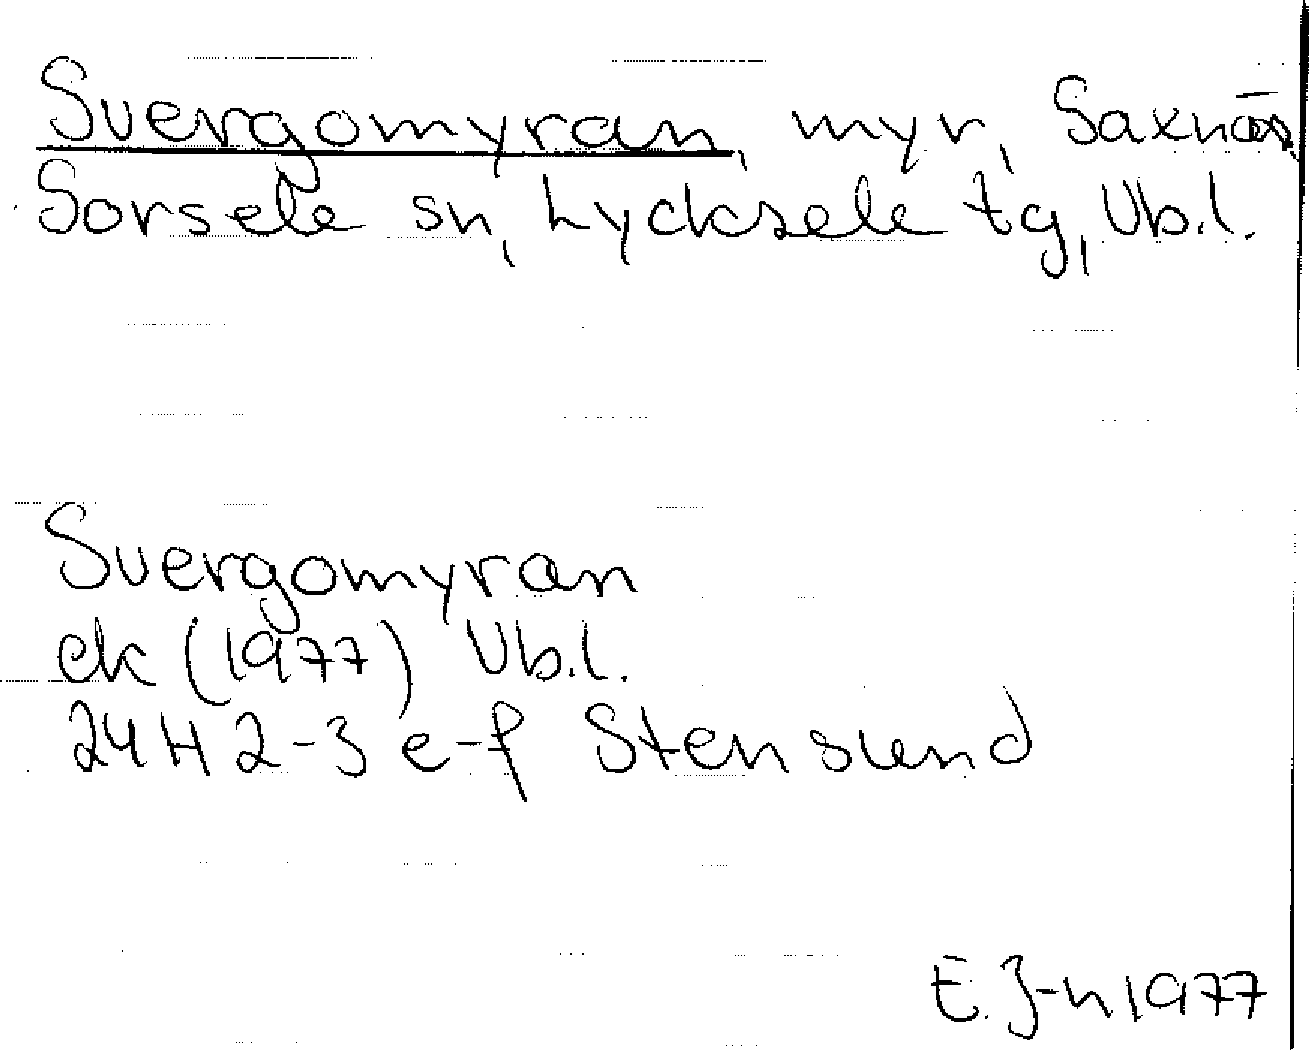 Svergomyran, myr, Saxnäs,
Sorsele sn, Lycksele tg, Vb.l.
Svergomyran
ek (1977) Vb.l.
24H 2-3 e-f Stensund
E. J-n 1977